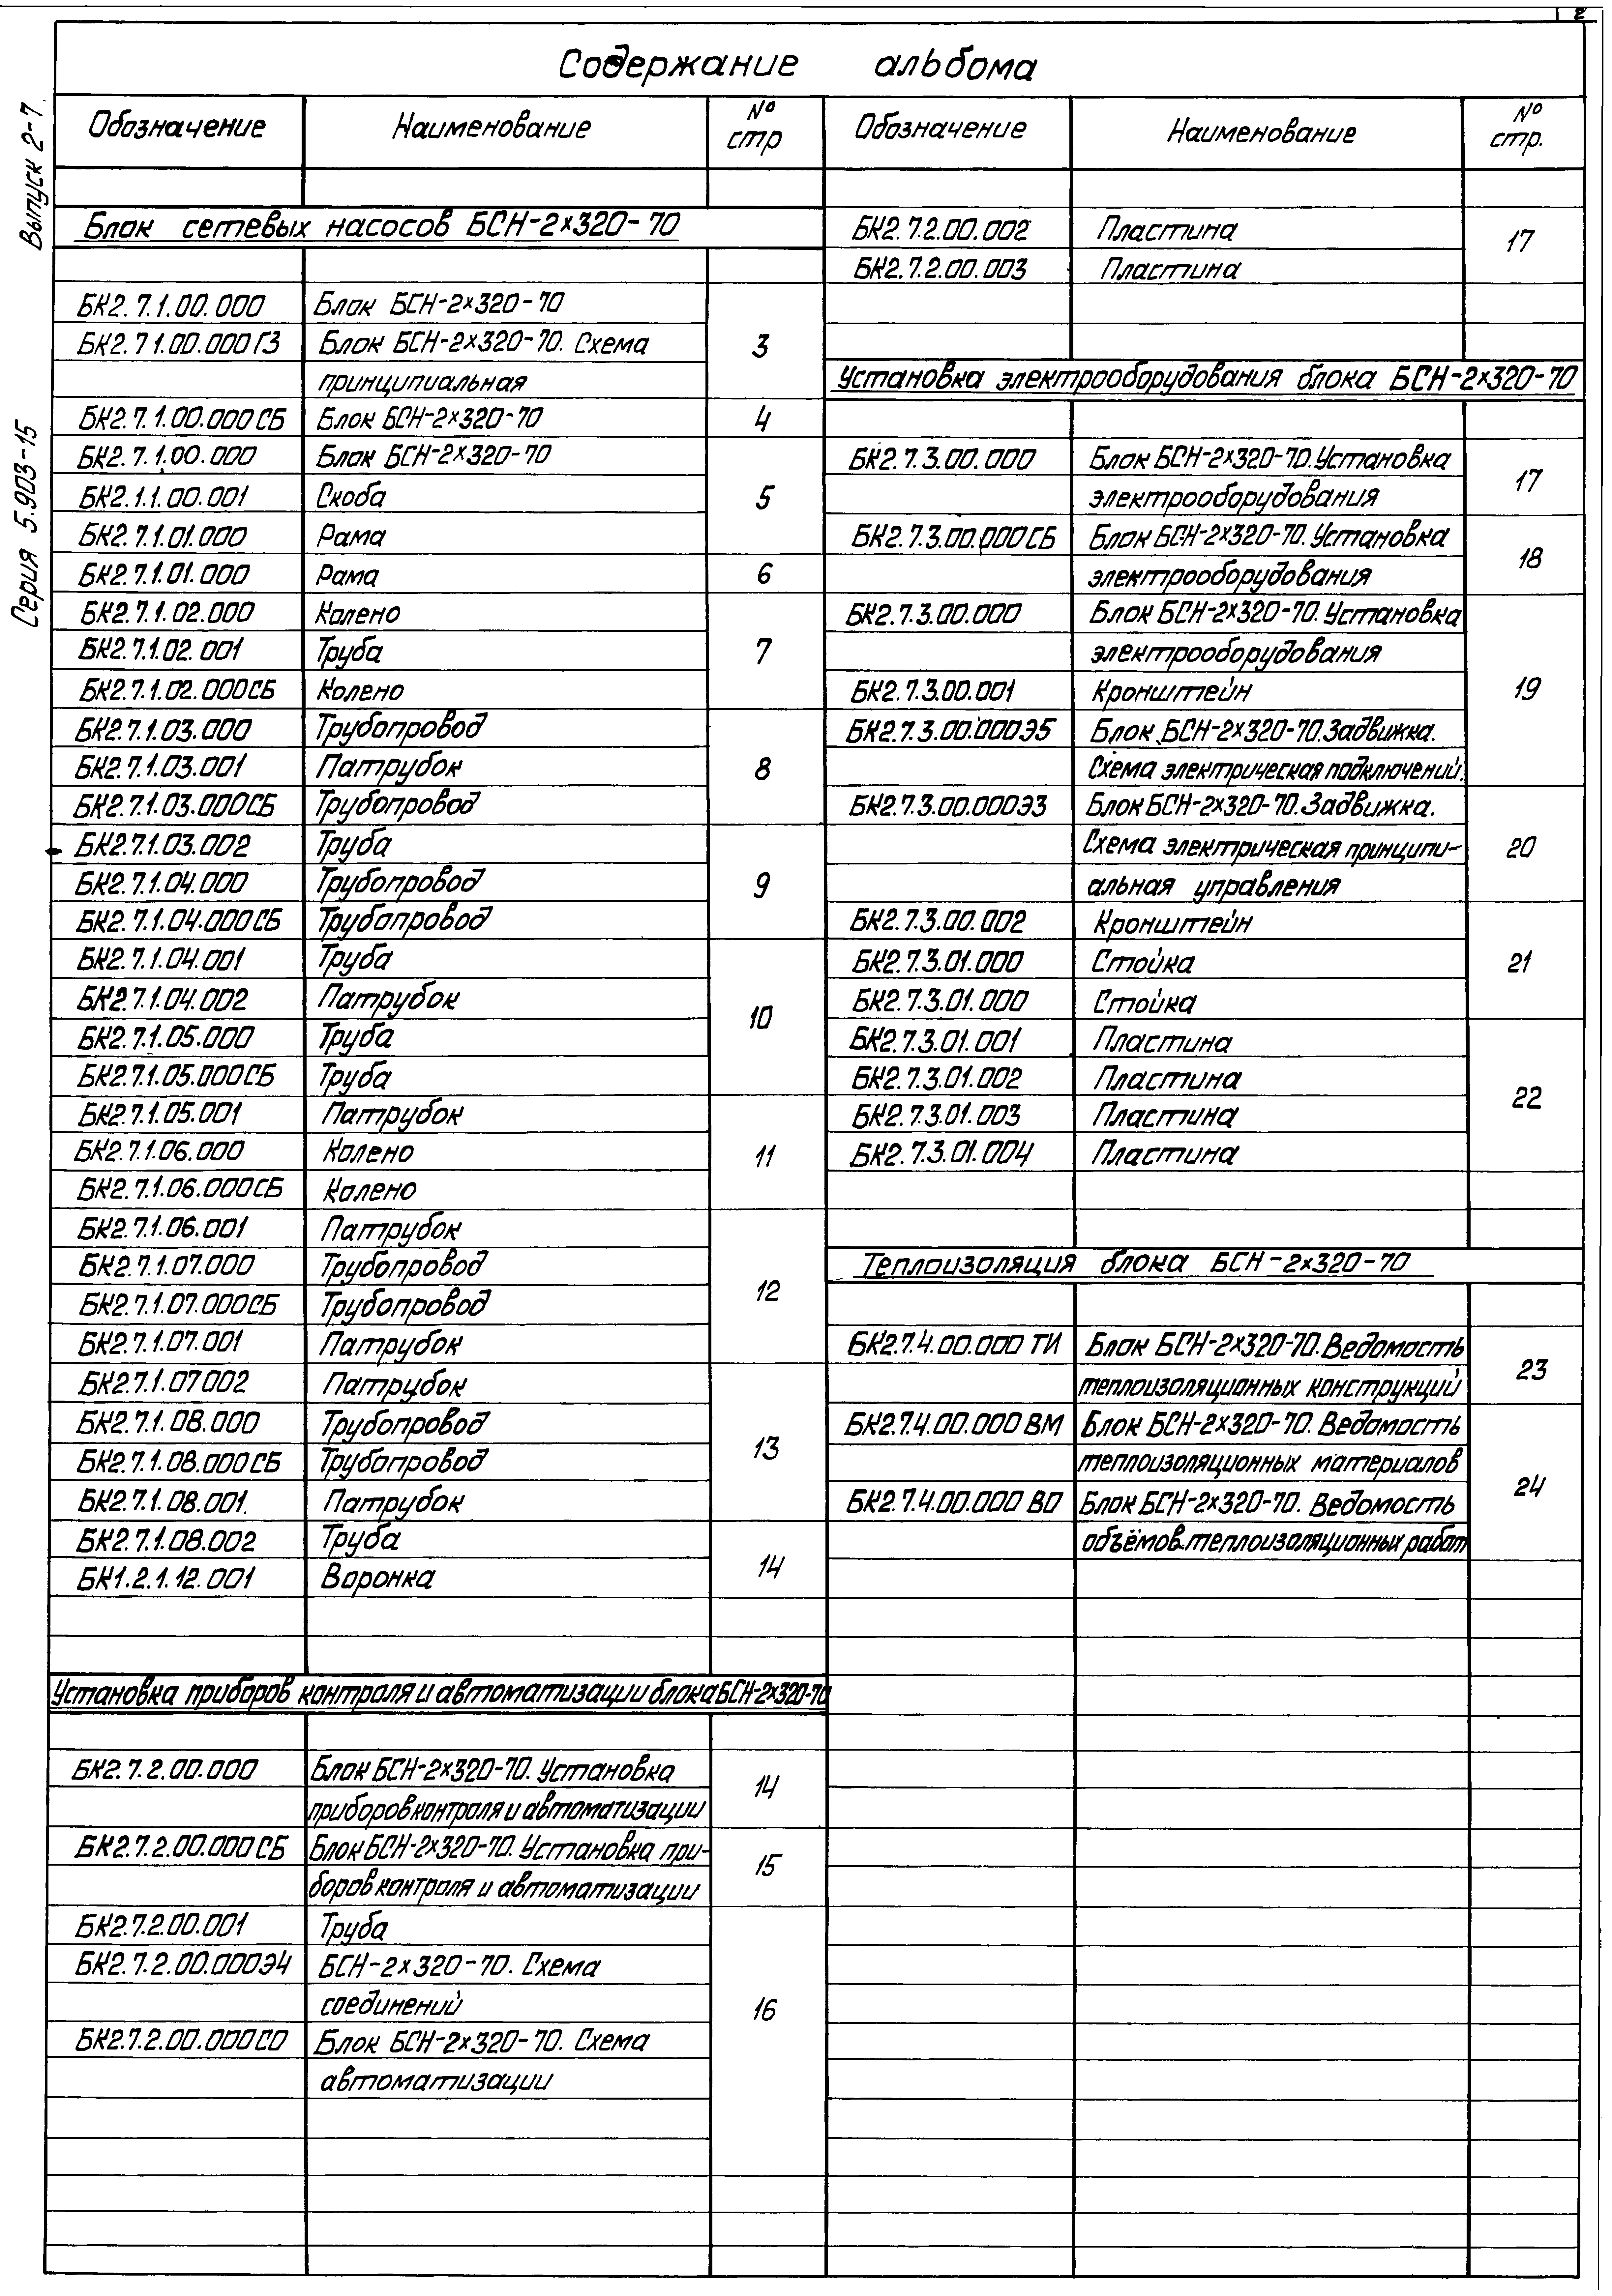 2
Содержание альбома
Выпуск 2-7
Серия 5.903-15
Обозначение Наименование № стр
Блок сетевых насосов БСН-2×320-70
БК2.7.1.00.000 Блок БСН-2×320-70
БК2.7 1.00.000 ГЗ Блок БСН-2×320-70. Схема 3
принципиальная
БК2.7.1.00.000 СБ Блок БСН-2×320-70 4
БК2.7.1.00.000 Блок БСН-2×320-70
БК2.1.1.00.001 Скоба 5
БК2.7.1.01.000 Рама
БК2.7.1.01.000 Рама 6
БК2.7.1.02.000 Колено
БК2.7.1.02.001 Труба 7
БК2.7.1.02.000СБ Колено
БК2.7.1.03.000 Трубопровод
БК2.7.1.03.001 Патрубок 8
БК2.7.1.03.000СБ Трубопровод
БК2.7.1.03.002 Труба
БК2.7.1.04.000 Трубопровод 9
БК2.7.1.04.000СБ Трубопровод
БК2.7.1.04.001 Труба
БК2.7.1.04.002 Патрубок 10
БК2.7.1.05.000 Труба
БК2.7.1.05.000СБ Труба
БК2.7.1.05.001 Патрубок
БК2.7.1.06.000 Колено 11
БК2.7.1.06.000СБ Колено
БК2.7.1.06.001 Патрубок
БК2.7.1.07.000 Трубопровод 12
БК2.7.1.07.000СБ Трубопровод
БК2.7.1.07.001 Патрубок
БК2.7.1.07 002 Патрубок
БК2.7.1.08.000 Трубопровод 13
БК2.7.1.08.000 СБ Трубопровод
БК2.7.1.08.001. Патрубок
БК2.7.1.08.002 Труба 14
БК1.2.1.12.001 Воронка
Установка приборов контроля и автоматизации блока БСН-2×320-70
БК2.7.2.00.000 Блок БСН-2×320-70. Установка 14
приборов контроля и автоматизации
БК2.7.2.00.000 СБ Блок БСН-2×320-70. Установка при- 15
боров контроля и автоматизации
БК2.7.2.00.001 Труба
БК2.7.2.00.000Э4 БСН-2×320-70. Схема
соединений 16
БК2.7.2.00.000СО Блок БСН-2×320-70. Схема
автоматизации
Обозначение Наименование № стр.
БК2.7.2.00.002 Пластина 17
БК2.7.2.00.003 Пластина
Установка электрооборудования блока БСН-2×320-70
БК2.7.3.00.000 Блок БСН-2×320-70. Установка 17
электрооборудования
БК2.7.3.00.000СБ Блок БСН-2×320-70. Установка 18
электрооборудования
БК2.7.3.00.000 Блок БСН-2×320-70. Установка
электрооборудования
БК2.7.3.00.001 Кронштейн 19
БК2.7.3.00.000Э5 Блок БСН-2×320-70. Задвижка.
Схема электрическая подключений.
БК2.7.3.00.000Э3 Блок БСН-2×320-70. Задвижка.
Схема электрическая принципи- 20
альная управления
БК2.7.3.00.002 Кронштейн
БК2.7.3.01.000 Стойка 21
БК2.7.3.01.000 Стойка
БК2.7.3.01.001 Пластина
БК2.7.3.01.002 Пластина 22
БК2.7.3.01.003 Пластина
БК2.7.3.01.004 Пластина
Теплоизоляция блока БСН-2×320-70
БК2.7.4.00.000 ТИ Блок БСН-2×320-70. Ведомость 23
теплоизоляционных конструкций
БК2.7.4.00.000 ВМ Блок БСН-2×320-70. Ведомость
теплоизоляционных материалов 24
БК2.7.4.00.000 ВО Блок БСН-2×320-70. Ведомость
объёмов теплоизоляционных работ